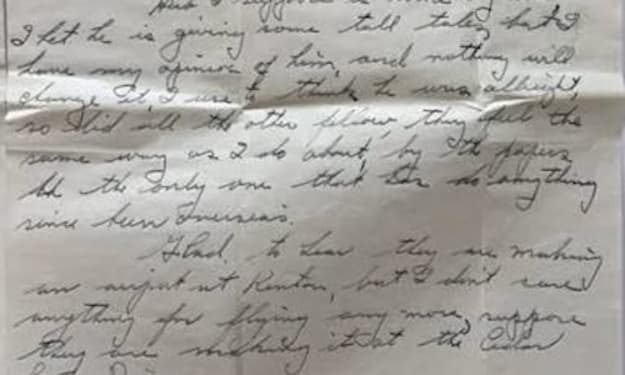 I
I bet he is giving some tall tales but I
have my opinion of him, and nothing will
change it, I use to think he was allright,
so did all the other fellow, they feel the
same way as I do about, by the papers
he the only one that has do anything
since been Overseas.
Glad to hear they are making
an airport at Renton, but I don't care
anything for flying any more, suppose
they are making it at the Cedar